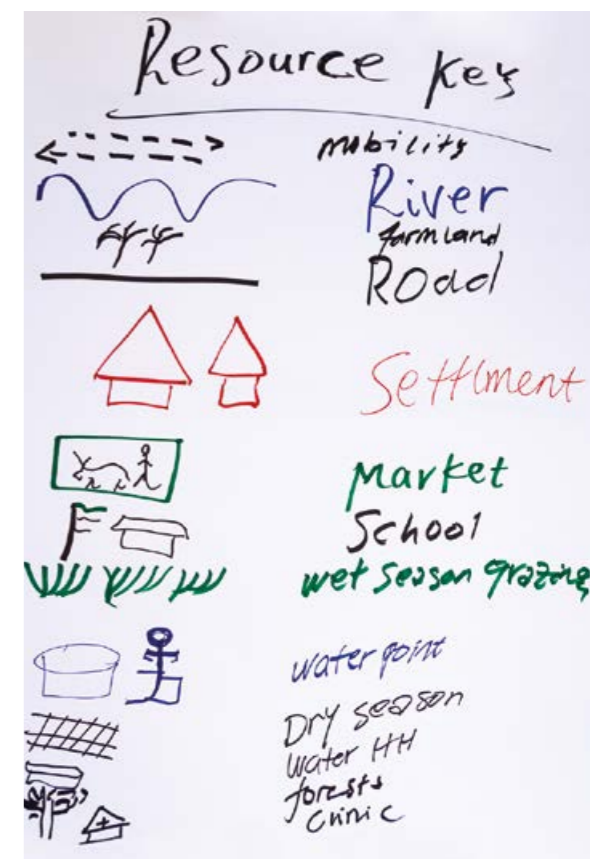 Resource Key
mobility
River
farmland
Road
Settlment
Market
School
wet season grazing
water point
Dry season
water HH
forests
Clinic